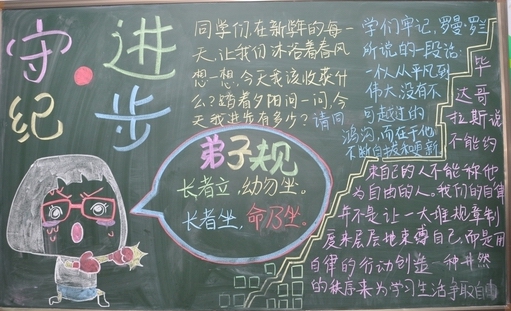 守纪
进步
同学们,在新学年的每一
天,让我们沐浴着春风
想一想,今天我该收获什
么?踏着夕阳问一问,今
天我进步有多少?请同
学们牢记,罗曼·罗兰
所说的一段话:
一个人从平凡到
伟大,没有不
可越过的
鸿沟,而在于他
不断自拔和更新
毕
达哥
拉斯说
不能约
束自己的人不能称他
为自由的人。我们的自律
并不是让一大堆规章制
度来层层地束缚自己,而是用
自律的行动创造一种井然
的秩序来为学习生活争取自由
弟子规
长者立,幼勿坐。
长者坐,命乃坐。